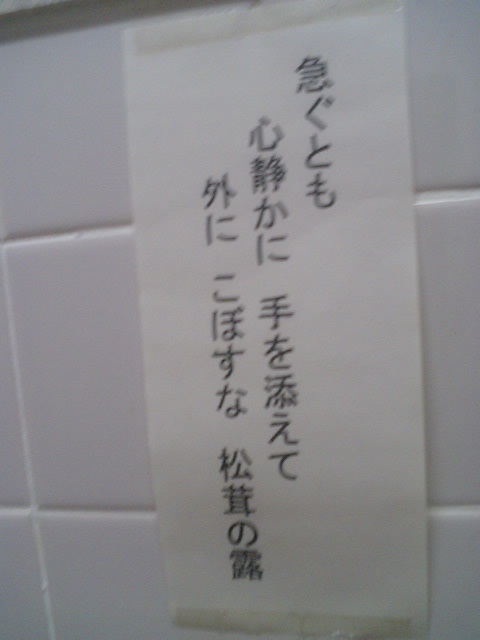 急ぐとも
心静かに 手を添えて
外に こぼすな 松茸の露